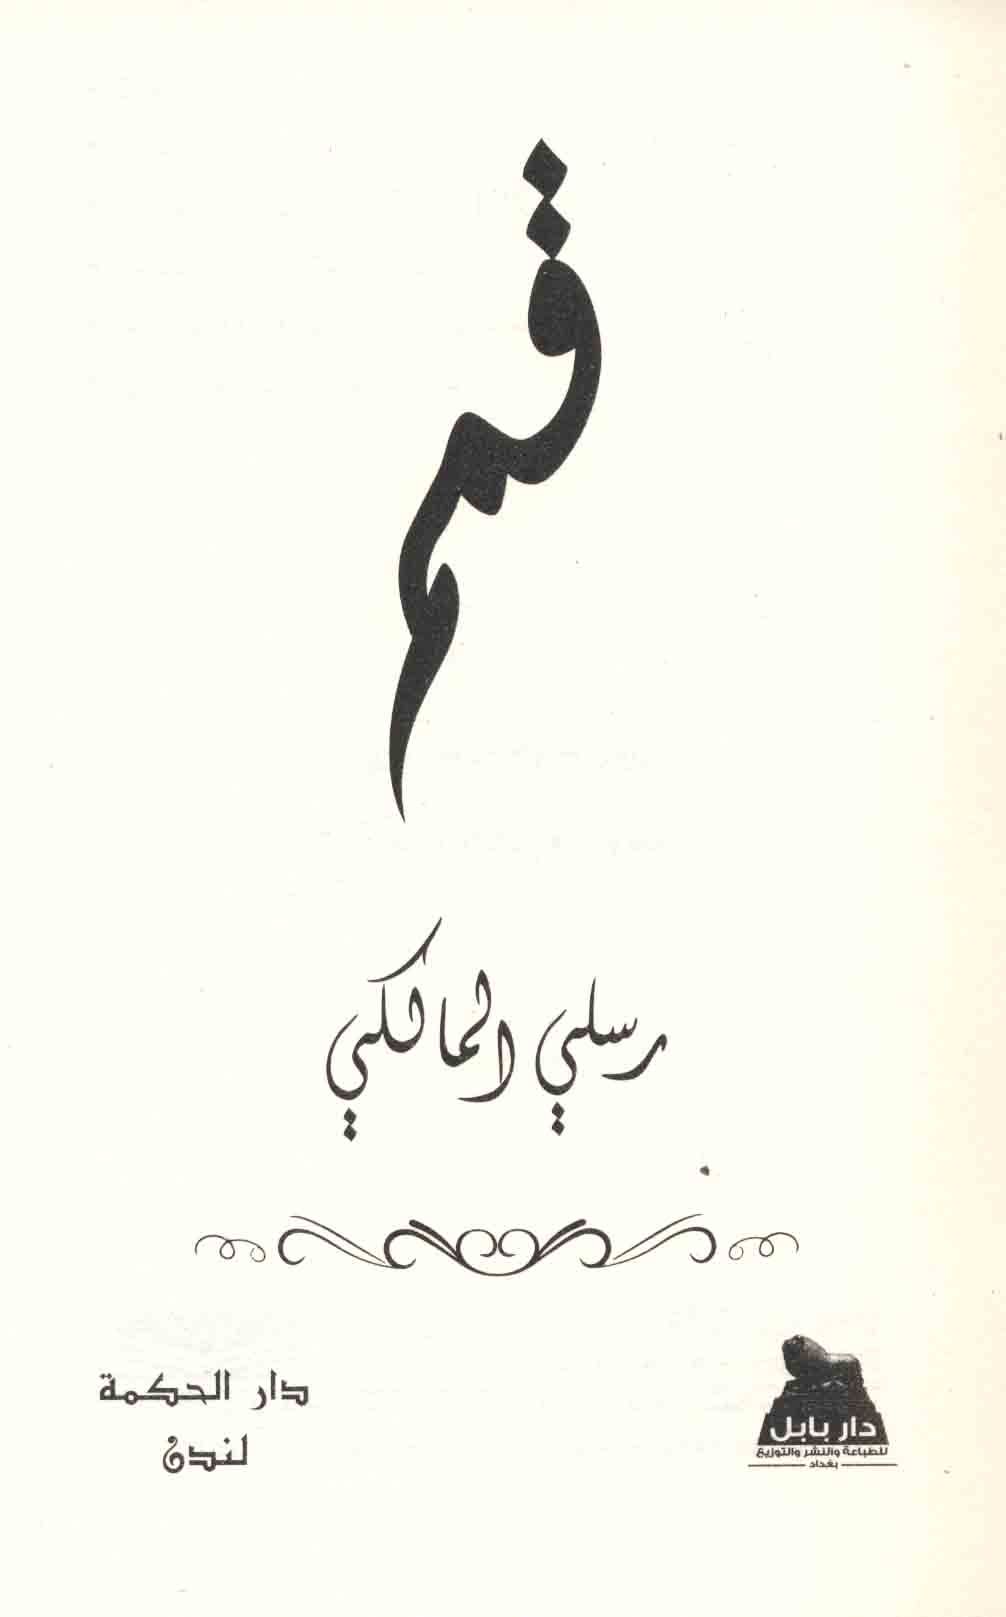 قمم
رسلي المالكي
دار بابل
للطباعة والنشر والتوزيع
بغداد
دار الحكمة
لندن